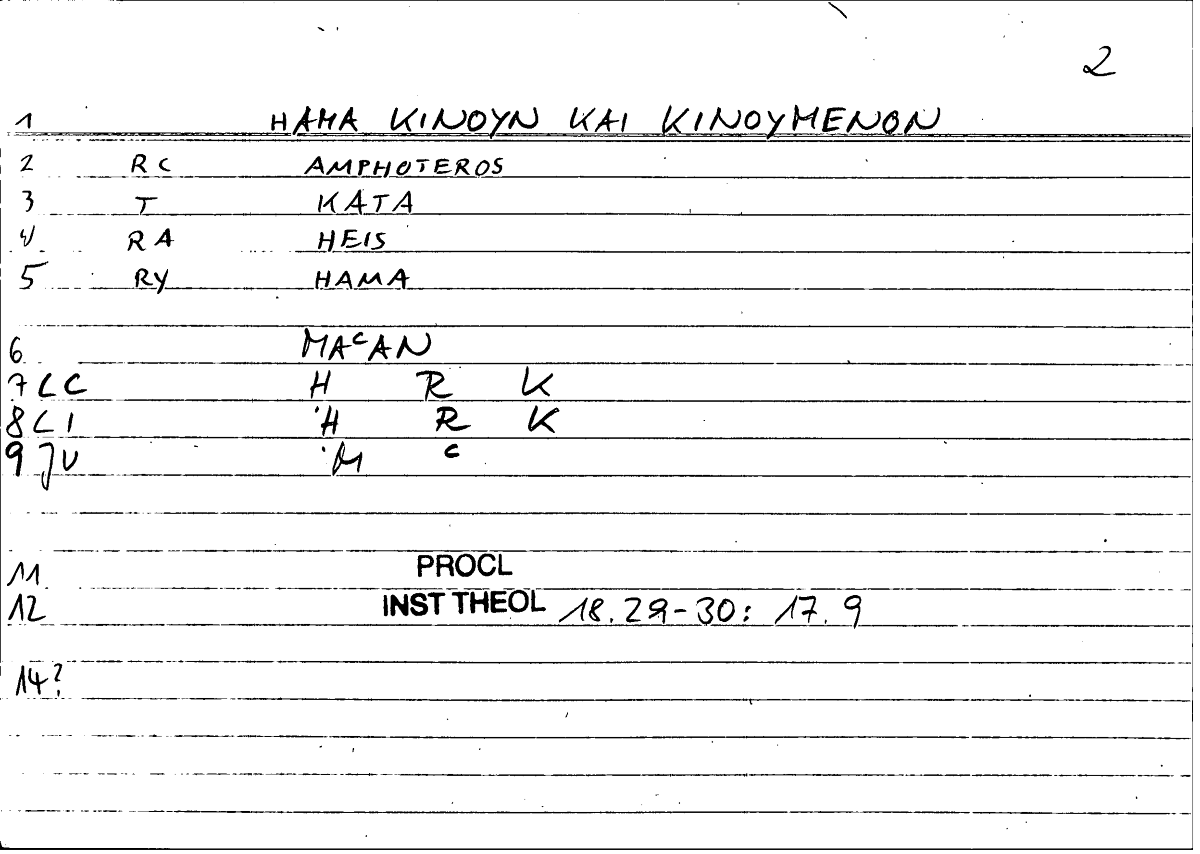 2
1 HAMA KINOYN KAI KINOYMENON
2 RC AMPHOTEROS
3 T KATA
4 RA HEIS
5 RY HAMA
6 MAᶜAN
7 LC H R K
8 LI 'H R K
9 JU 'M ᶜ
11 PROCL
12 INST THEOL 18.29-30: 17.9
14?